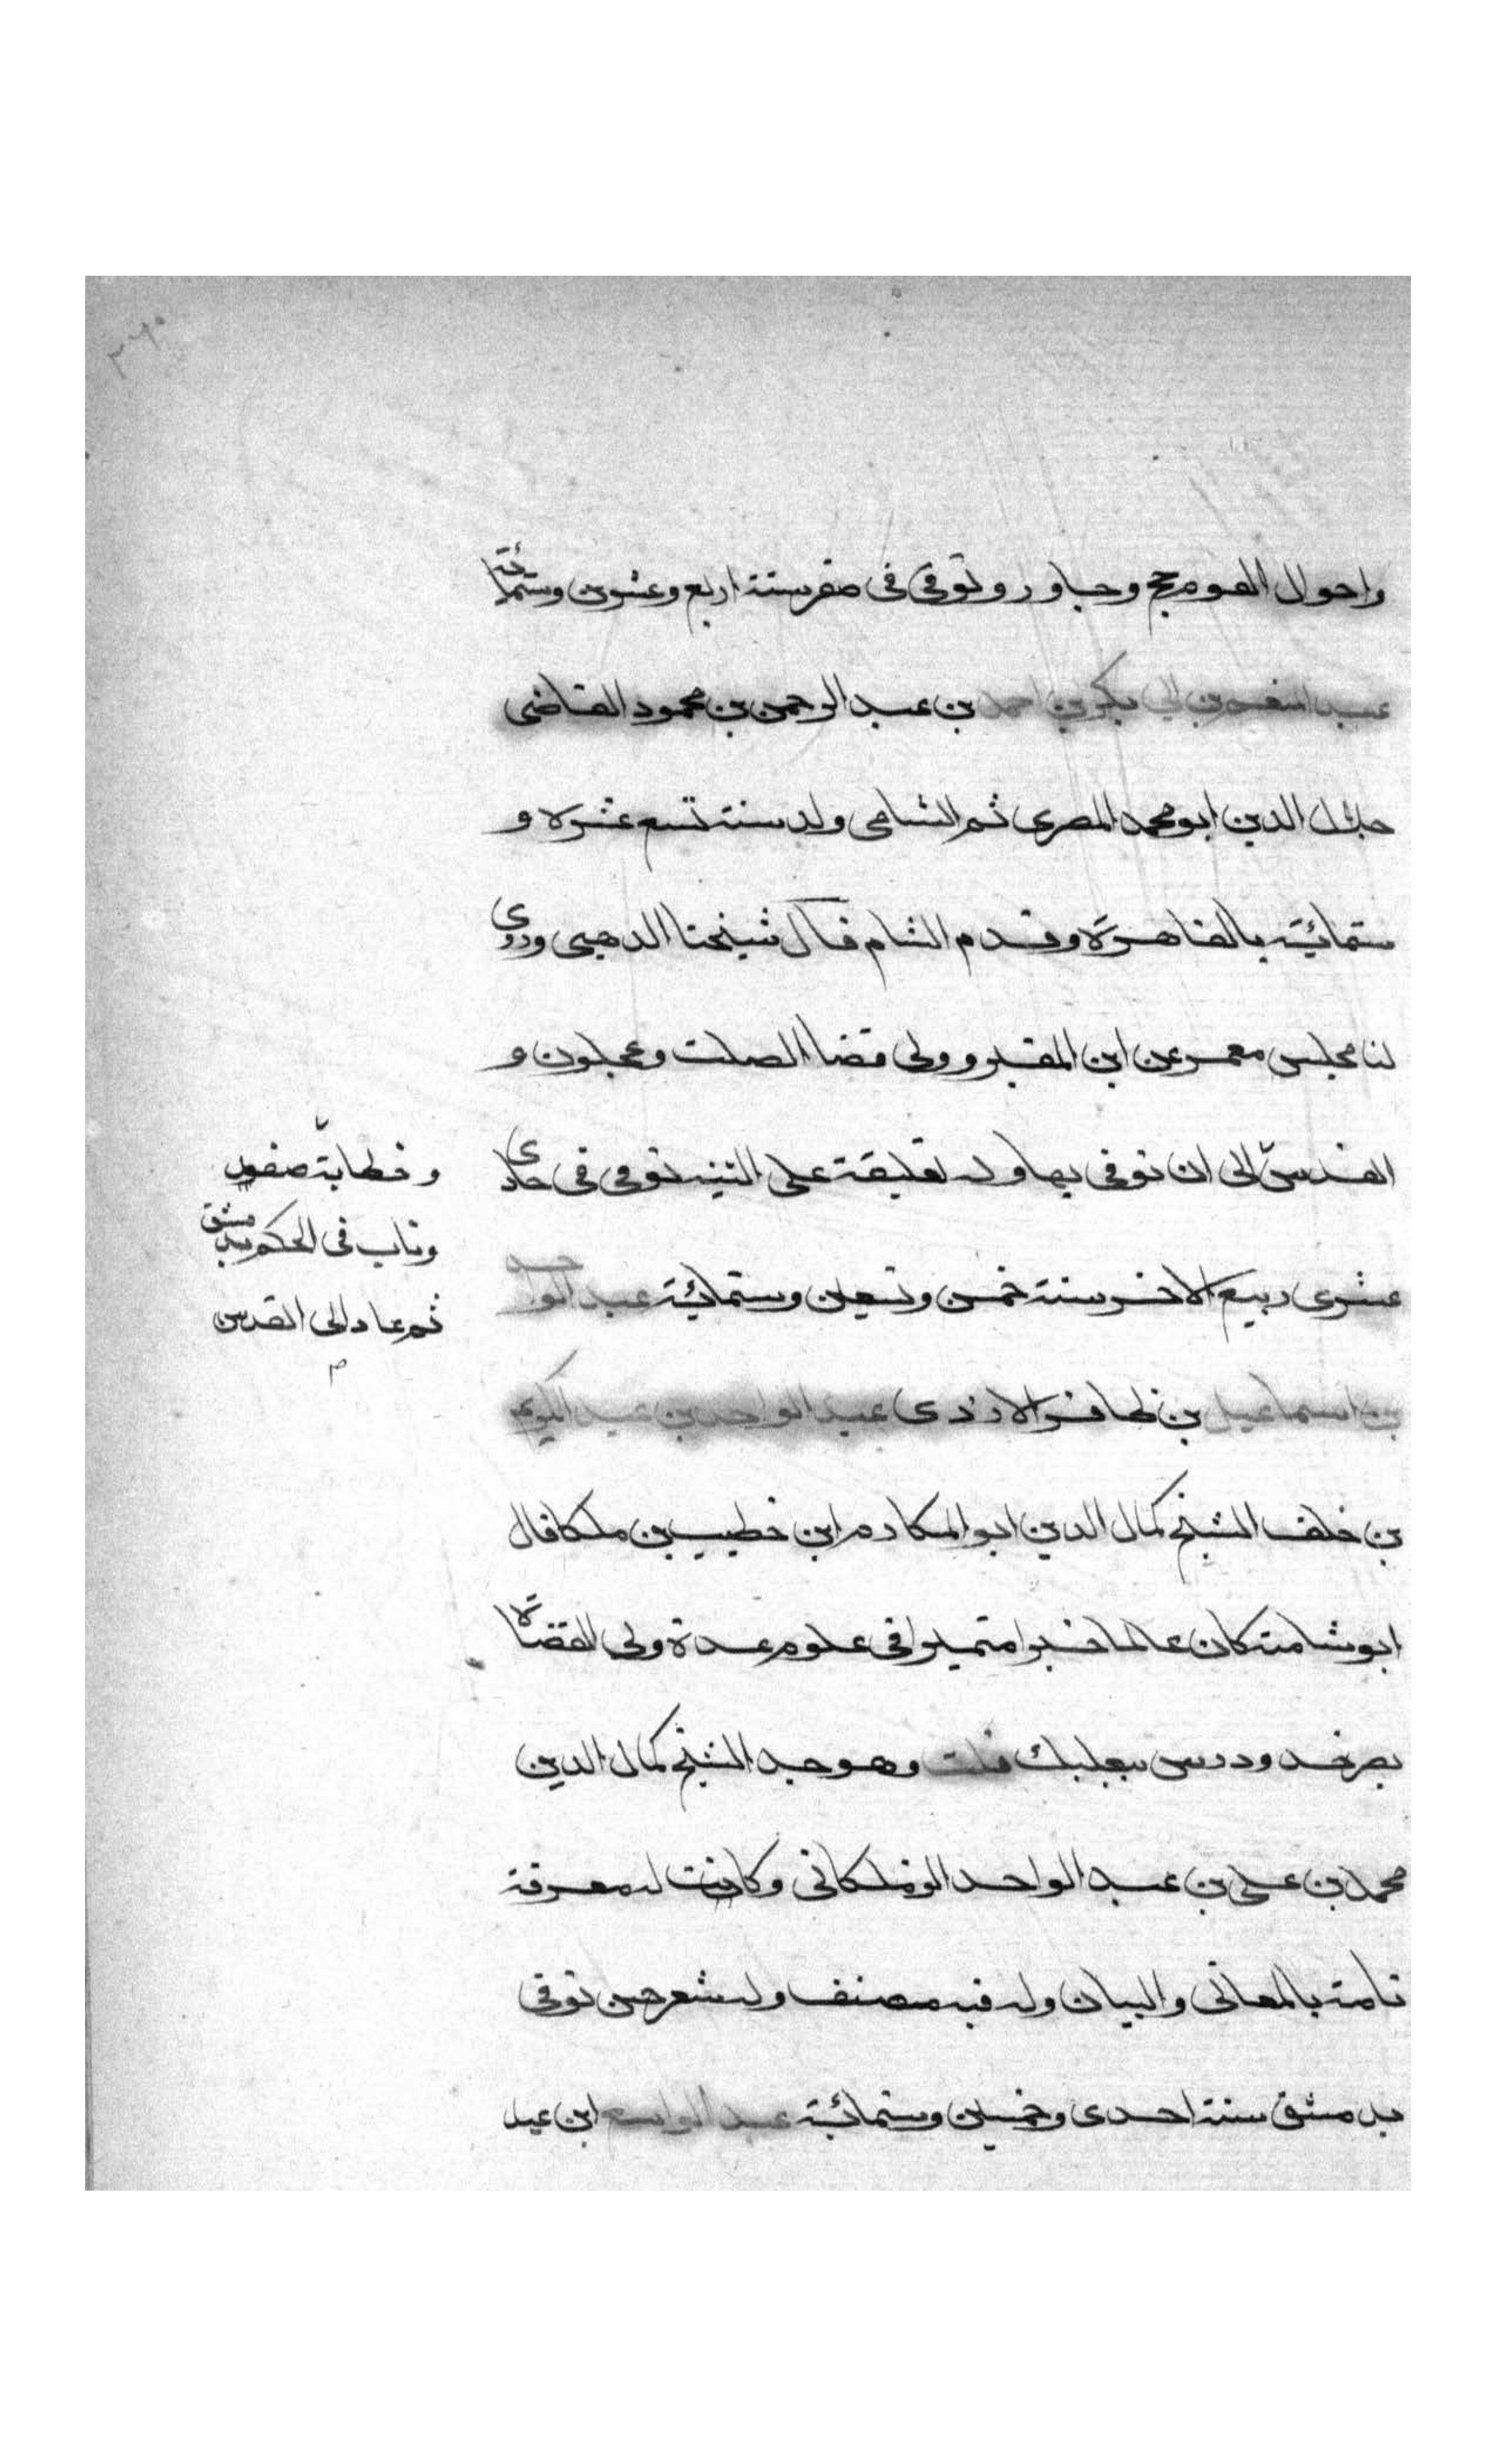 ٣٦٠
واحوال القوم حج وجاور وتوفى فى صفر سنة اربع وعشرين وستمائة
عبد المنعم بن ابي بكر بن احمد بن عبد الرحمن بن محمود القاضى
جلال الدين ابو محمد المصرى ثم الشامى ولد سنة تسع عشرة و
ستمائية بالقاهرة وقدم الشام قال شيخنا الدهبى وروى
لنا مجلس معمر عن ابن المقير وولى قضا الصلت وعجلون و
القدس الى ان توفى بها وله تعليقة على التنبيه توفى فى حادى
عشرى ربيع الاخر سنة خمس وتسعين وستمائية عبد الواحد
بن اسماعيل بن ظافر الازدى عبد الواحد بن عبد الكريم
بن خلف الشيخ كمال الدين ابو المكارم ابن خطيب بن ملكا قال
ابو شامة كان عالما خيرا متميزا فى علوم عدة ولى القضاة
بصرخد ودرس ببعلبك قلت وهو جد الشيخ كمال الدين
محمد بن على بن عبد الواحد الزملكانى وكانت له معرفة
تامة بالمعانى والبيان وله فيه مصنف وله شعر حسن توفى
بدمشق سنة احدى وخمسين وستمائية عبد الواسع ابن عبد
وخطابة صفد
وناب فى الحكم بدمشق
ثم عاد الى القدس